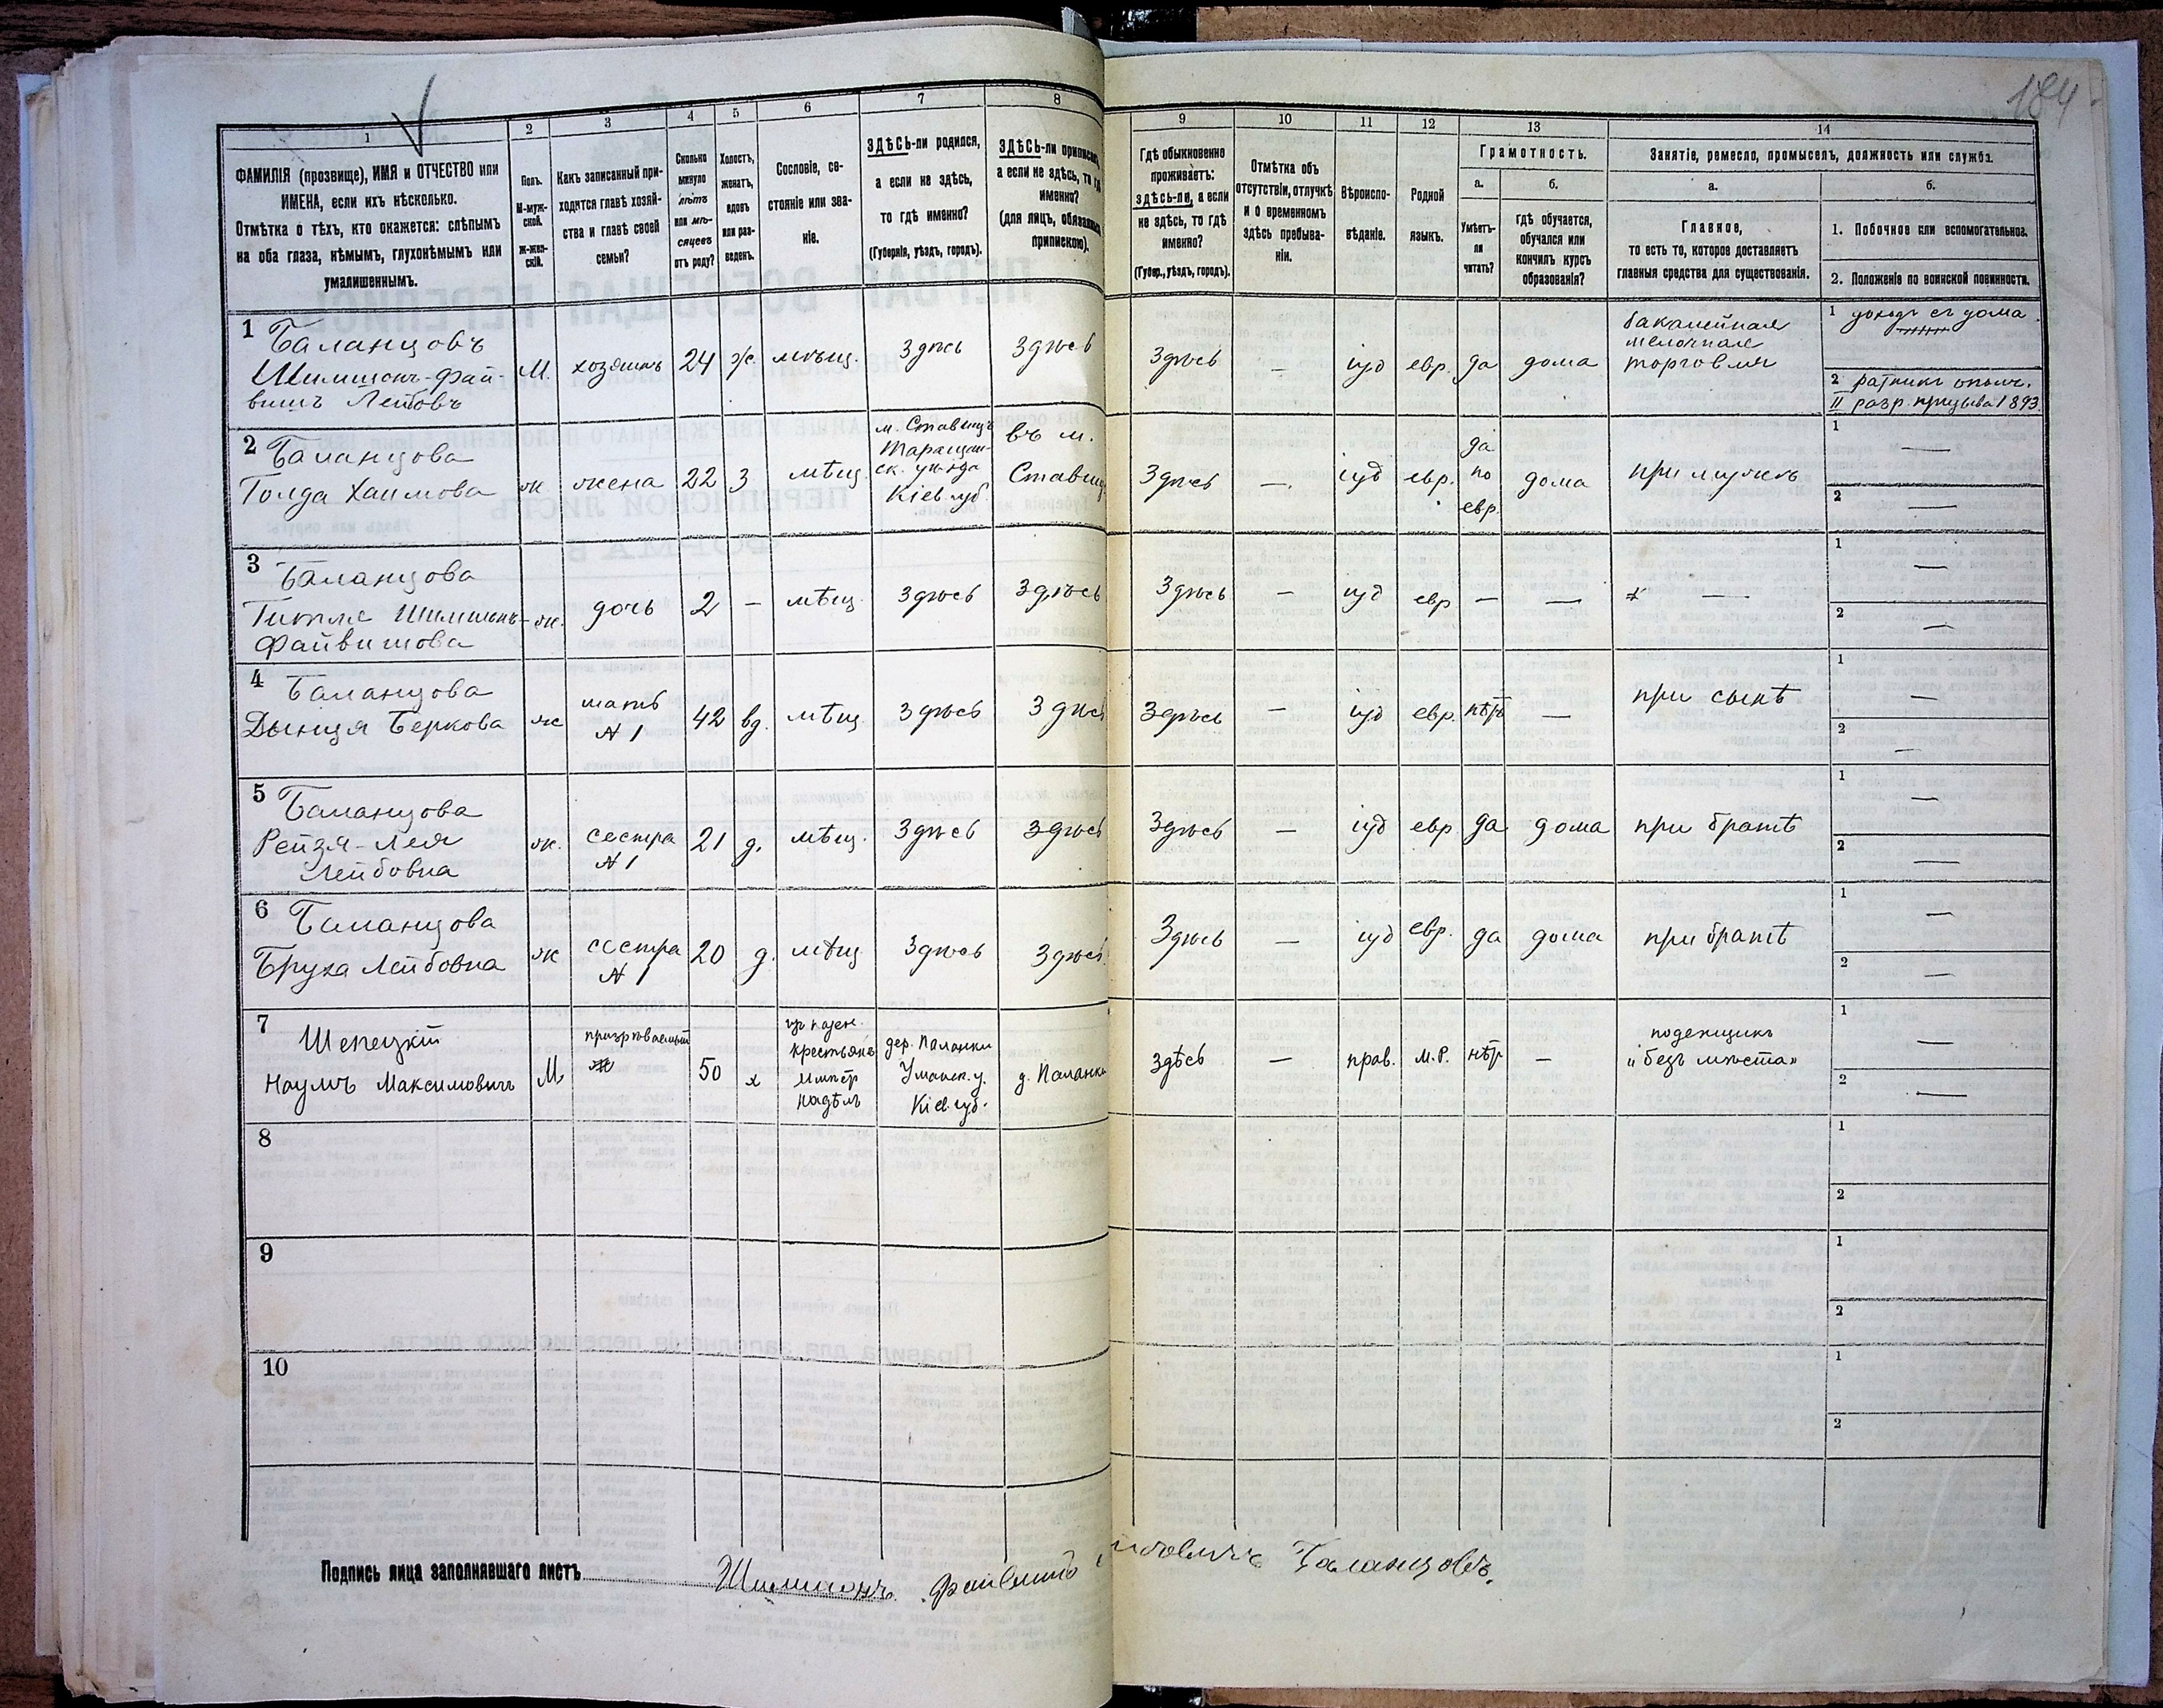 184
1
2
3
4
5
6
7
8
9
10
11
12
13
14
ФАМИЛІЯ (прозвище), ИМЯ и ОТЧЕСТВО или
ИМЕНА, если ихъ нѣсколько.
Отмѣтка о тѣхъ, кто окажется: слѣпымъ
на оба глаза, нѣмымъ, глухонѣмымъ или
умалишеннымъ.
Полъ.
М-муж-
ской.
Ж-жен-
скій.
Какъ записанный при-
ходится главѣ хозяй-
ства и главѣ своей
семьи?
Сколько
минуло
лѣтъ
или мѣ-
сяцевъ
отъ роду?
Холостъ,
женатъ,
вдовъ
или раз-
веденъ.
Сословіе, со-
стояніе или зва-
ніе.
ЗДѢСЬ-ли родился,
а если не здѣсь,
то гдѣ именно?
(Губернія, уѣздъ, городъ).
ЗДѢСЬ-ли приписанъ,
а если не здѣсь, то гдѣ
именно?
(для лицъ, обязанныхъ
припискою).
Гдѣ обыкновенно
проживаетъ:
здѣсь-ли, а если
не здѣсь, то гдѣ
именно?
(Губер., уѣздъ, городъ).
Отмѣтка объ
отсутствіи, отлучкѣ
и о временномъ
здѣсь пребыва-
ніи.
Вѣроиспо-
вѣданіе.
Родной
языкъ.
Грамотность.
а.
б.
Умѣетъ-
ли
читать?
гдѣ обучается,
обучался или
кончилъ курсъ
образованія?
Занятіе, ремесло, промыселъ, должность или служба.
а.
б.
Главное,
то есть то, которое доставляетъ
главныя средства для существованія.
1. Побочное или вспомогательное.
2. Положеніе по воинской повинности.
1 Баланцовъ
Шимшонъ-Фай-
вишъ Лейбовъ
М.
хозяинъ
24
ж.
мѣщ.
Здѣсь
Здѣсь
Здѣсь
—
іуд
евр.
да
дома
бакалейная
мелочная
торговля
1 доходъ съ дома
2 ратникъ ополч.
II разр. призыва 1893
2 Баланцова
Голда Хаимова
ж.
жена
22
З
мѣщ.
м. Ставищъ
Таращан-
ск. уѣзда
Кіев. губ.
въ м.
Ставищ
Здѣсь
—
іуд
евр.
да
по
евр.
дома
при мужѣ
1 —
2 —
3 Баланцова
Титля Шимшонъ-
Файвишова
ж.
дочь
2
—
мѣщ
Здѣсь
Здѣсь
Здѣсь
—
іуд
евр
—
—
—
1 —
2 —
4 Баланцова
Дынця Беркова
ж
мать
№ 1
42
вд.
мѣщ
Здѣсь
Здѣсь
Здѣсь
—
іуд
евр.
нѣтъ
—
при сынѣ
1 —
2 —
5 Баланцова
Рейзя-Лея
Лейбовна
ж.
сестра
№ 1
21
д.
мѣщ.
Здѣсь
Здѣсь
Здѣсь
—
іуд
евр
да
дома
при братѣ
1 —
2 —
6 Баланцова
Бруха Лейбовна
ж
сестра
№ 1
20
д.
мѣщ
Здѣсь
Здѣсь
Здѣсь
—
іуд
евр.
да
дома
при братѣ
1 —
2 —
7 Шепецкій
Наумъ Максимовичъ
М
призрѣваемый
50
х
крестьянъ
надѣлъ
дер. Паланки
Уманск. у.
Кіев. губ.
д. Паланка
здѣсь
—
прав.
М.Р.
нѣтъ
—
поденщикъ
„безъ мѣста"
1 —
2 —
8
1
2
9
1
2
10
1
2
Подпись лица заполнявшаго листъ
Шимшонъ Файвишъ Баланцовъ.